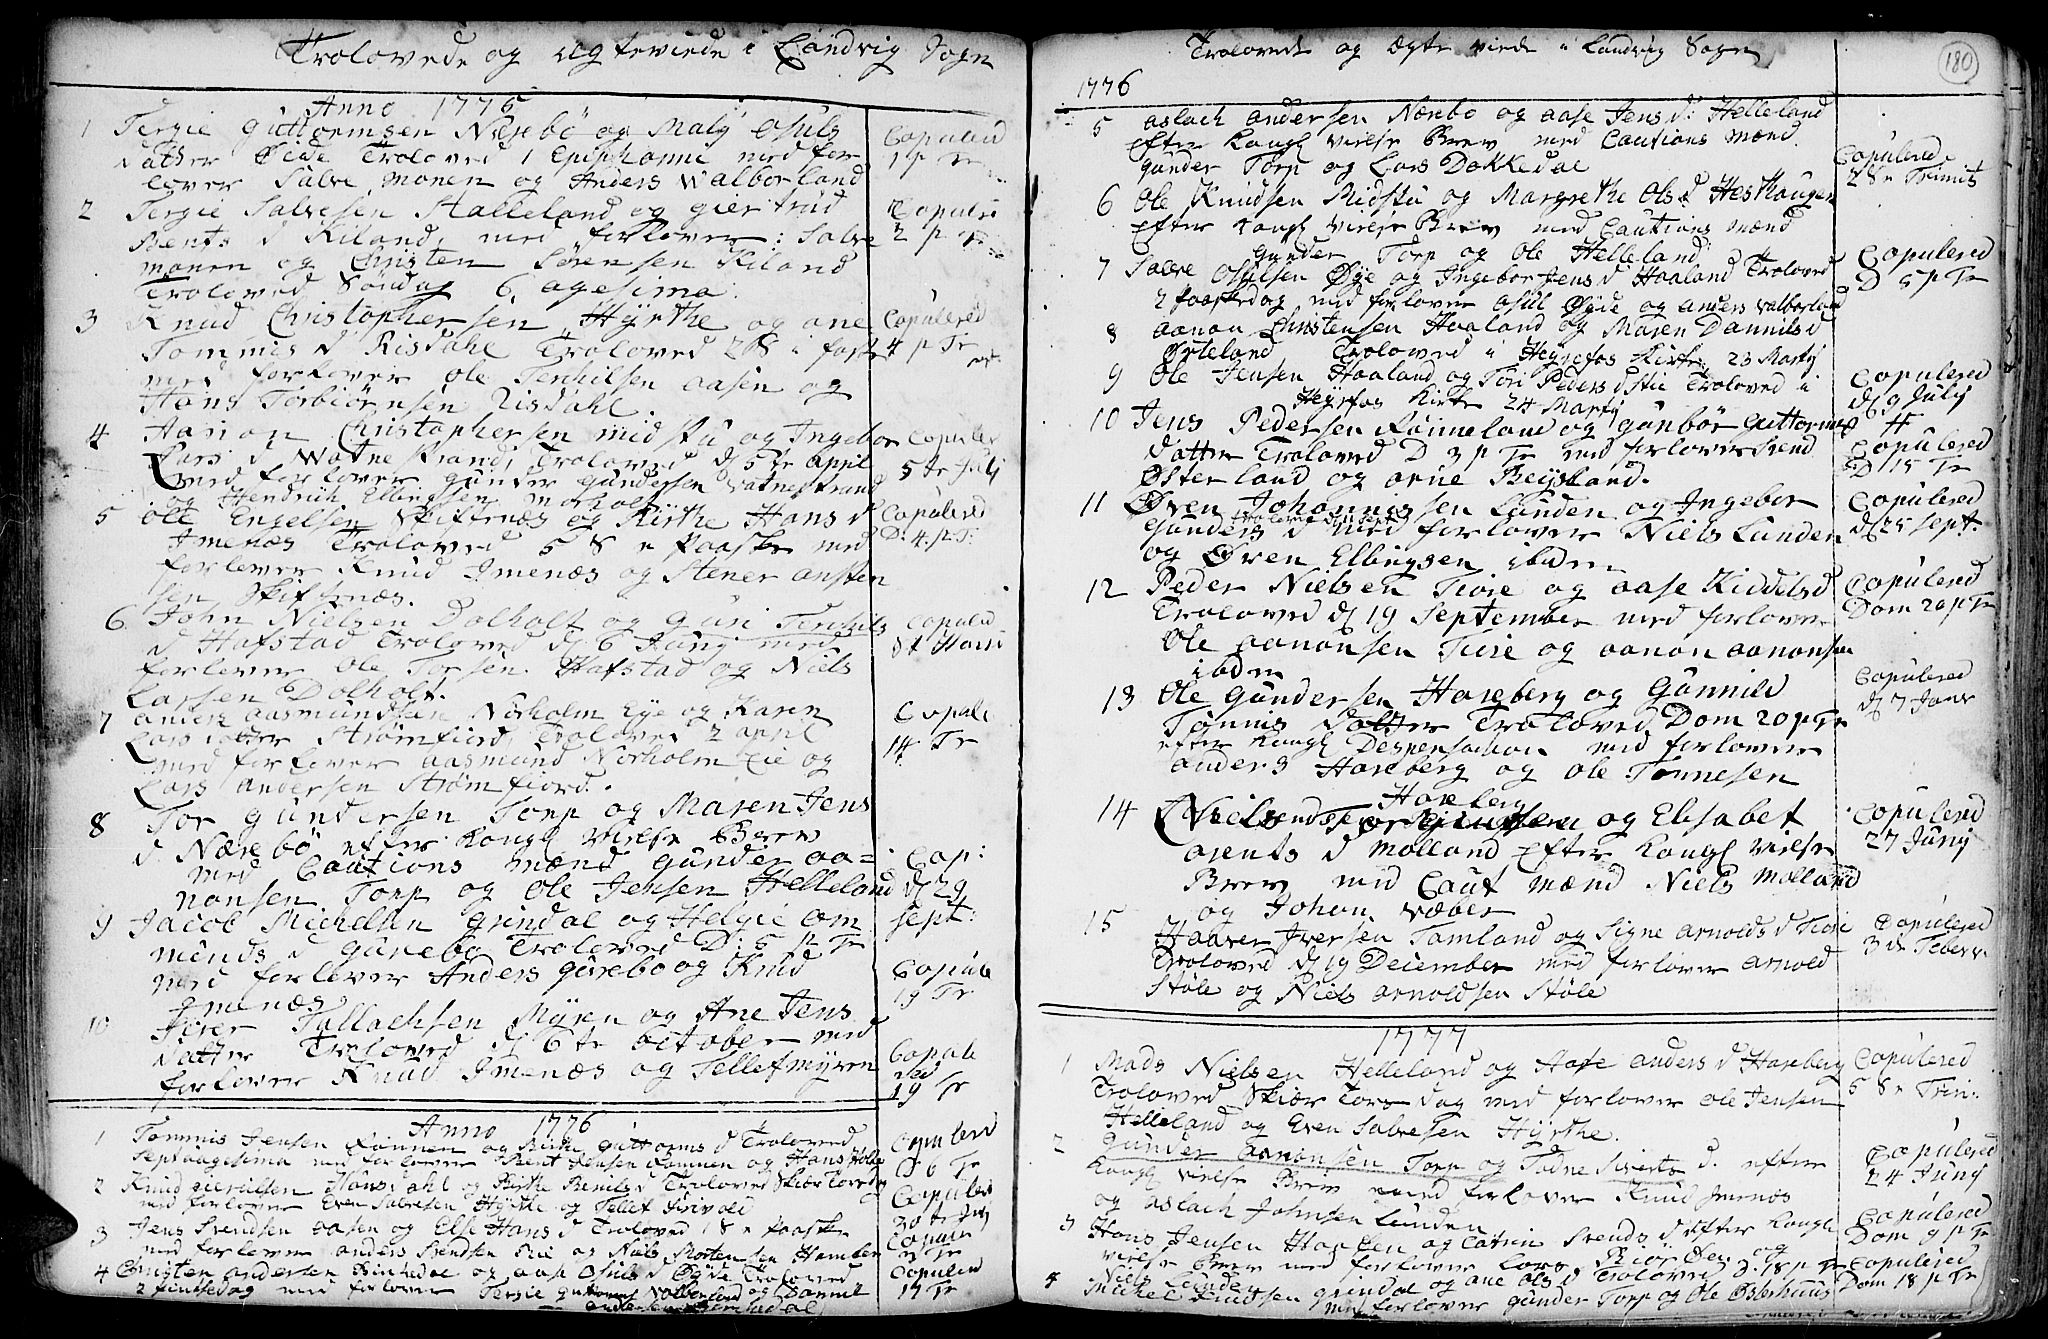 Trolovede og ægteviede i Landvig Sogn
Anno 1775
1 Tergie Guttormsen Nærebø og Maly Osuls
datter Øide Troloved 1 Epiphanni med for
lover Salve Monen og Anders Walborland
Copulerd
1 p Tr
2 Tergie Salvesen Halleland og Giertrud
Bents d Kiland, med forlover: Salve
monen og Christen Sørensen Kiland
Troloved Søndag 6 agesima.
Copuler
2 p Tr
3 Knud Christophersen Hyrthe og ane
Tommis d Risdahl Troloved 2 S i faste
med forlover Ole Terchilsen aasen og
Hans Torbiörnsen Risdahl.
Copulered
4 p Tr
4 Aanon Christophersen midstu og Ingebor
Lars d Watnestrand, Troloved d 5te april
med forlover gunder Gundersen Vatnestrand
og Hendrich Ellingssen Morholt
Copuler
5te July
5 Ole Engelsen Skiftenæs og Kirthe Hans d
Imenæs Troloved 5 S e Paaske med
forlover Knud Imenæs og Stener ansten
sen Skiftenæs.
Copulered
D. 4 p Tr:
6 John Nielsen Dolholt og Guri Terchils
d Hafstad Troloved d 6 Juny med
forlover Ole Torsen Hafstad og Niels
Larsen Dolholt.
Copulerd
7 anders aasmundsen Norholm Eye og Karen
Lars datter Strømfiord, Troloved 2 april
med forlover aasmund Norholm Eie og
Lars Andersen Strømfiord.
Copule
14 Tr
8 Tor Gundersen Torp og Maren Jens
d Nærebö efter Kongl Vielse Brev
med Cautions mænd Gunder aa=
nonsen Torp og Ole Jensen Helleland
Cop:
d 29
sept:
9 Jacob Michelsen Grindal og Helgie Om
munds d Gurebo Troloved D: 5 p Tr
med forlover Anders Gurebo og Knud
Imenæs
Copule
19 Tr
10 Peder Tallachsen Myren og Ane Jens
datter Troloved d 6te october med
forlover Knud Imenæs og Tellef myren
Copule
red
19 Tr
Anno 1776
1 Tommis Jensen Rønnen og Birthe Guttorms d Troloved
Septuagesima med forlover Brent Jensen Rønnen og Hans Holte
Copulerd
D 6 Tr
2 Knud gierulsen Hansdahl og Birthe Bentsd Troloved Skiærtorsdag
med forlover Even Salvesen Hyrthe og Tellef Sirivold
Copulerd
3 Jens Svendsen aasen og Else Hans d Troloved 1 S e Paaske
med forlover anders Svendsen Eie og Niels Mortensen Hamlen
Copuler
4 Christen andersen Birkedal og aase Osuls d Øyde Troloved
2 pintsedag med forlover Tergie Guttorms Walborland og Daniel
andersen Birkedal
Copulerd
17 Tr
Trolovede og Ægte viede i Landvig Sogn
180
1776
5 aslach andersen Nærebo og aase Jens d: Helleland
Efter Kongl vielse Brev med Cautions Mænd.
Gunder Torp og Lars Dokkedal
Copulered
2 S e Trinit
6 Ole Knudsen Midstu og Margrethe Ols d Heskaugen
Efter Kongl vielse Brev med Cautions mænd
Gunder Torp og Ole Helleland
Copulered
D 5 p Tr
7 Salve Osulsen Øye og Ingebor Jens d Haaland Troloved
2 paaskedag med forlover Osul Øyde og anders Valborland
8 aanon Christensen Haaland og Maren Daniels d
Østeland Troloved i Heyrefos Kirke 23 Marty
9 Ole Jensen Haaland og Tori Peders d Stie Troloved i
Heyrefos Kirke 24 Marty
Copulered
d 9 July
10 Jens Pedersen Rønneland og Gunbor Guttorms
datter Troloved D 3 p Tr med forlover Svend
Østerland og arne Beysland.
Copulered
D 15 Tr
11 Øven Johannissen Lunden og Ingebor
Gunders d med forlover Niels Lunden
og Øven Ellingsen ibidem
Copulered
d 25 Sept.
12 Peder Nielsen Tiore og aase Kiddelsd
Troloved d 19 September med forlover
Ole aanonsen Tiore og aanon aanonsen
ibdem
Copulered
Dom 20 p Tr
13 Ole Gundersen Hareberg og Gunnild
Tønnis datter Troloved Dom 20 p Tr
efter Kongl Despensasion med forlover
anders Hareberg og Ole Tønnesen
Hareberg
Copulered
d 7 Janr
14 Niels og Elisabet
arents d Molland Efter Kongl vielse
Brev med Caut mænd Niels Molland
og Johan Væber
Copulered
27 Juny
15 Haaver Iversen Tamland og Signe Arnolds d Tiore
Troloved d 19 December med forlover Arnold
Støle og Niels Arnoldsen Støle
Copulered
3 de Febrv.
1777
1 Mads Nielsen Helleland og Aase anders d Hareberg
Troloved Skiær Tors dag med forlover Ole Jensen
Helleland og Even Salvesen Hyrthe.
Copulered
5 S e Trin:
2 Gunder aanonsen Torp og Todne Siverts d. efter
Kongl vielse Brev med forlover Knud Imenæs
og aslach Johnsen Lunden
Copulered
24 Juny
3 Hans Jensen Hamlen og Catrin Svends d efter Kongl
vielse Brev med forlover Lars Riiör Øen og
Niels Lunden
Copulered
Dom 9 p Tr
4 Michel Knutsen Grindal og ane Ols d Troloved D. 18 p Tr
med forlover Gunder Torp og Ole Østerhuus
Copulered
Dom 18 p Tr